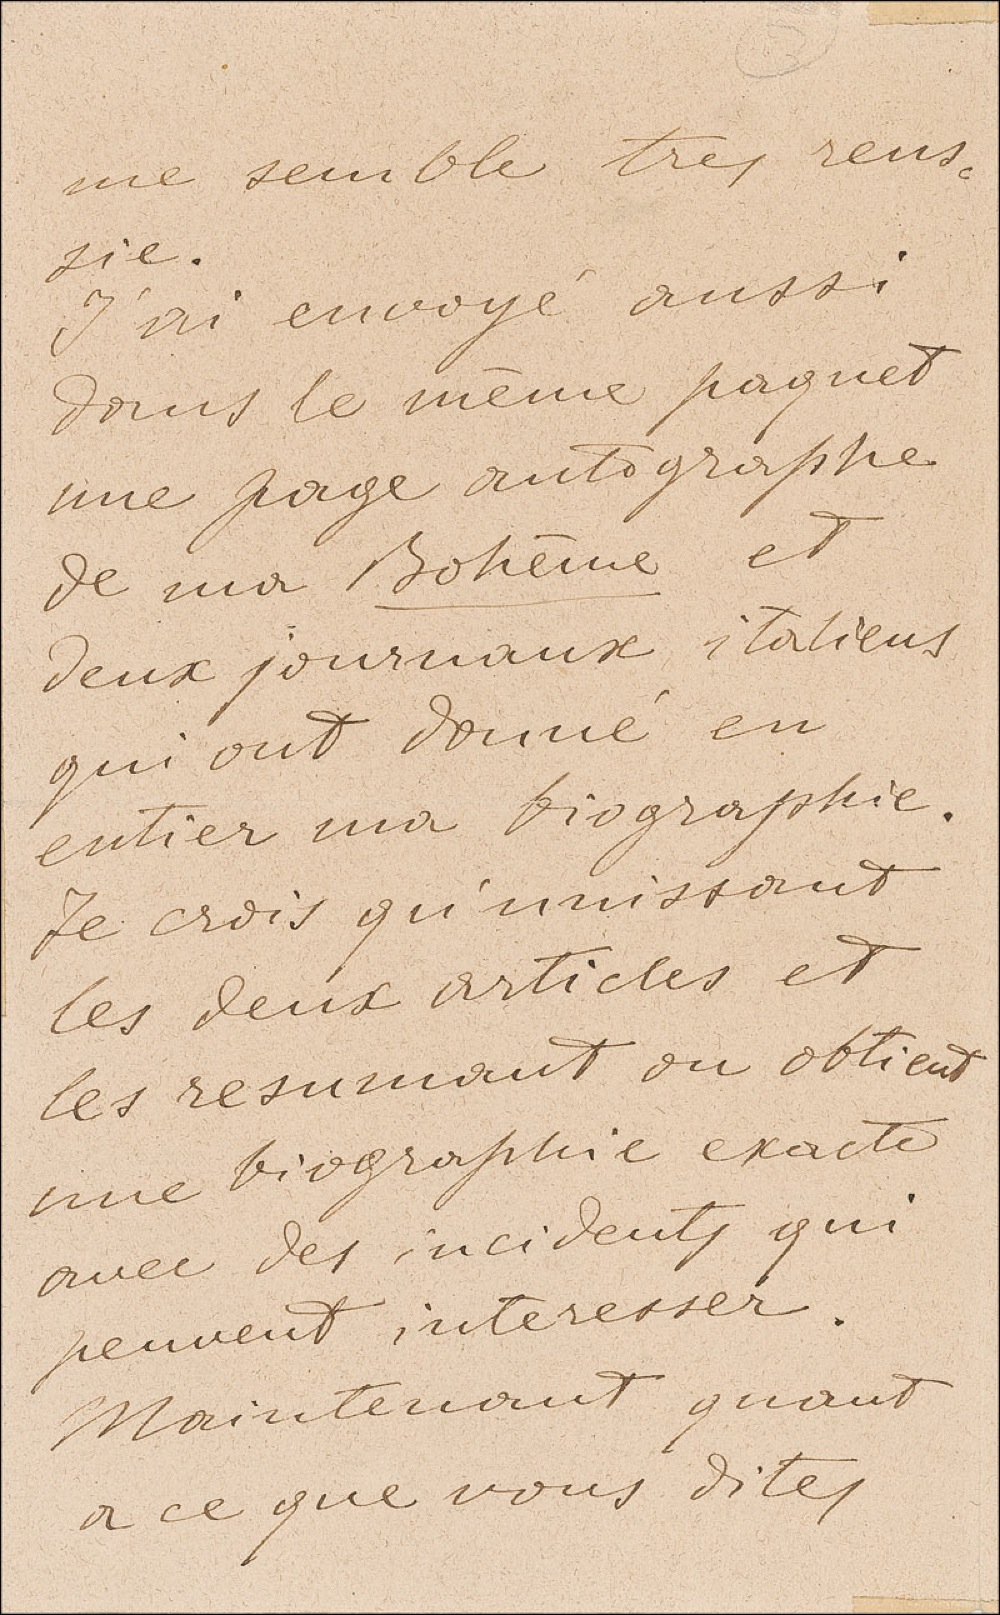 me semble tres reus-
sie.
J'ai envoyé aussi
dans le même paquet
une page autographe
de ma Bohême et
deux journaux italiens
qui ont donné en
entier ma biographie.
Je crois qu'unissant
les deux articles et
les resumant on obtient
une biographie exacte
avec des incidents qui
peuvent interesser.
Maintenant quant
a ce que vous dites